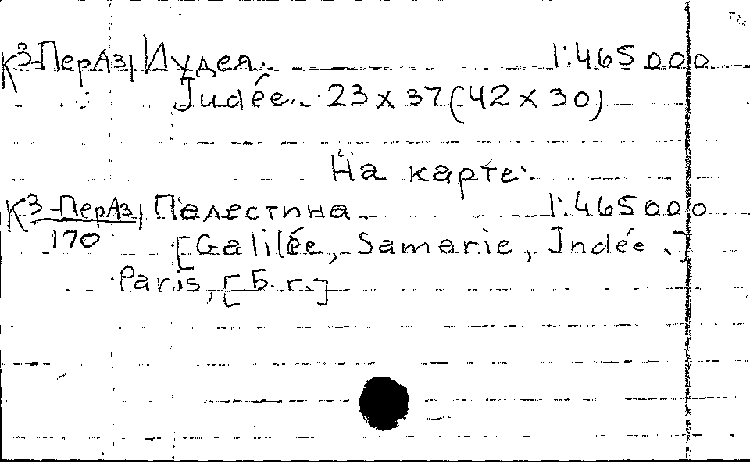 К3-ПерАз Иудея. 1:465000
Judée. 23 x 37 (42 x 30)
На карте:
К3-ПерАз Палестина. 1:465000
170 [Galilée, Samarie, Judée.]
Paris, [Б. г.]